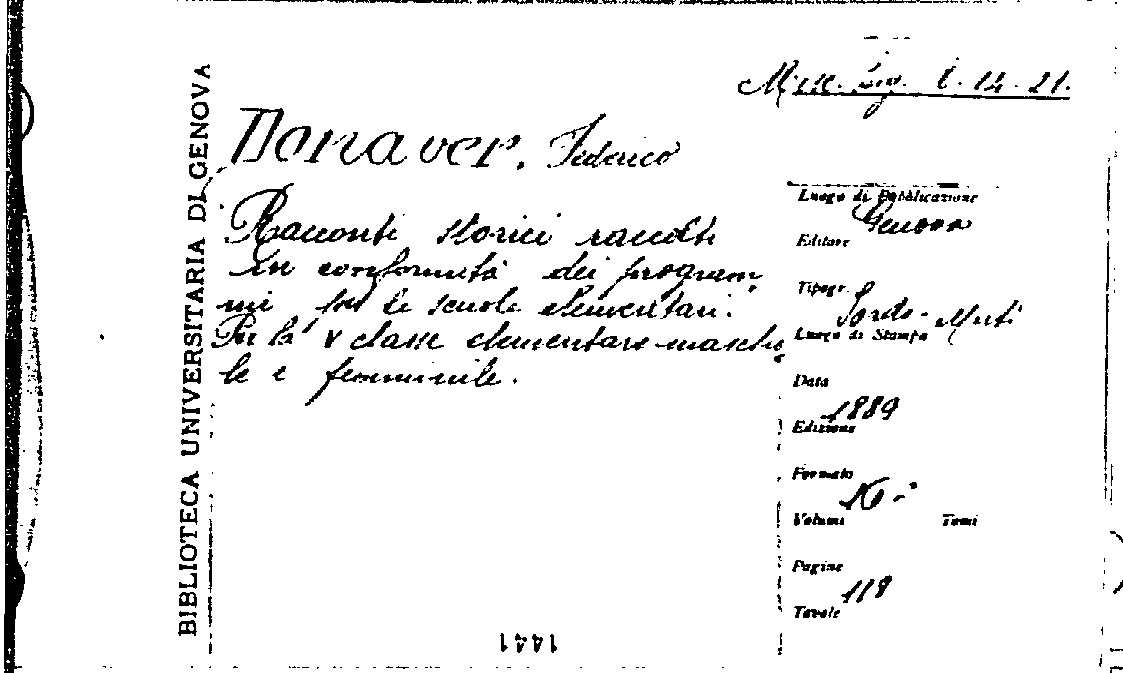 Misc. Lig. C. 14. 21.
BIBLIOTECA UNIVERSITARIA DI GENOVA
Donaver, Federico
Racconti storici raccolti
in conformità dei program,
mi per le scuole elementari.
Per la V classe elementare maschi,
le e femminile.
Luogo di Pubblicazione
Genova
Editore
Tipogr.
Sordo-Muti
Luogo di Stampa
Data
1889
Edizione
Formato
16°
Volumi Tomi
Pagine
118
Tavole
1441